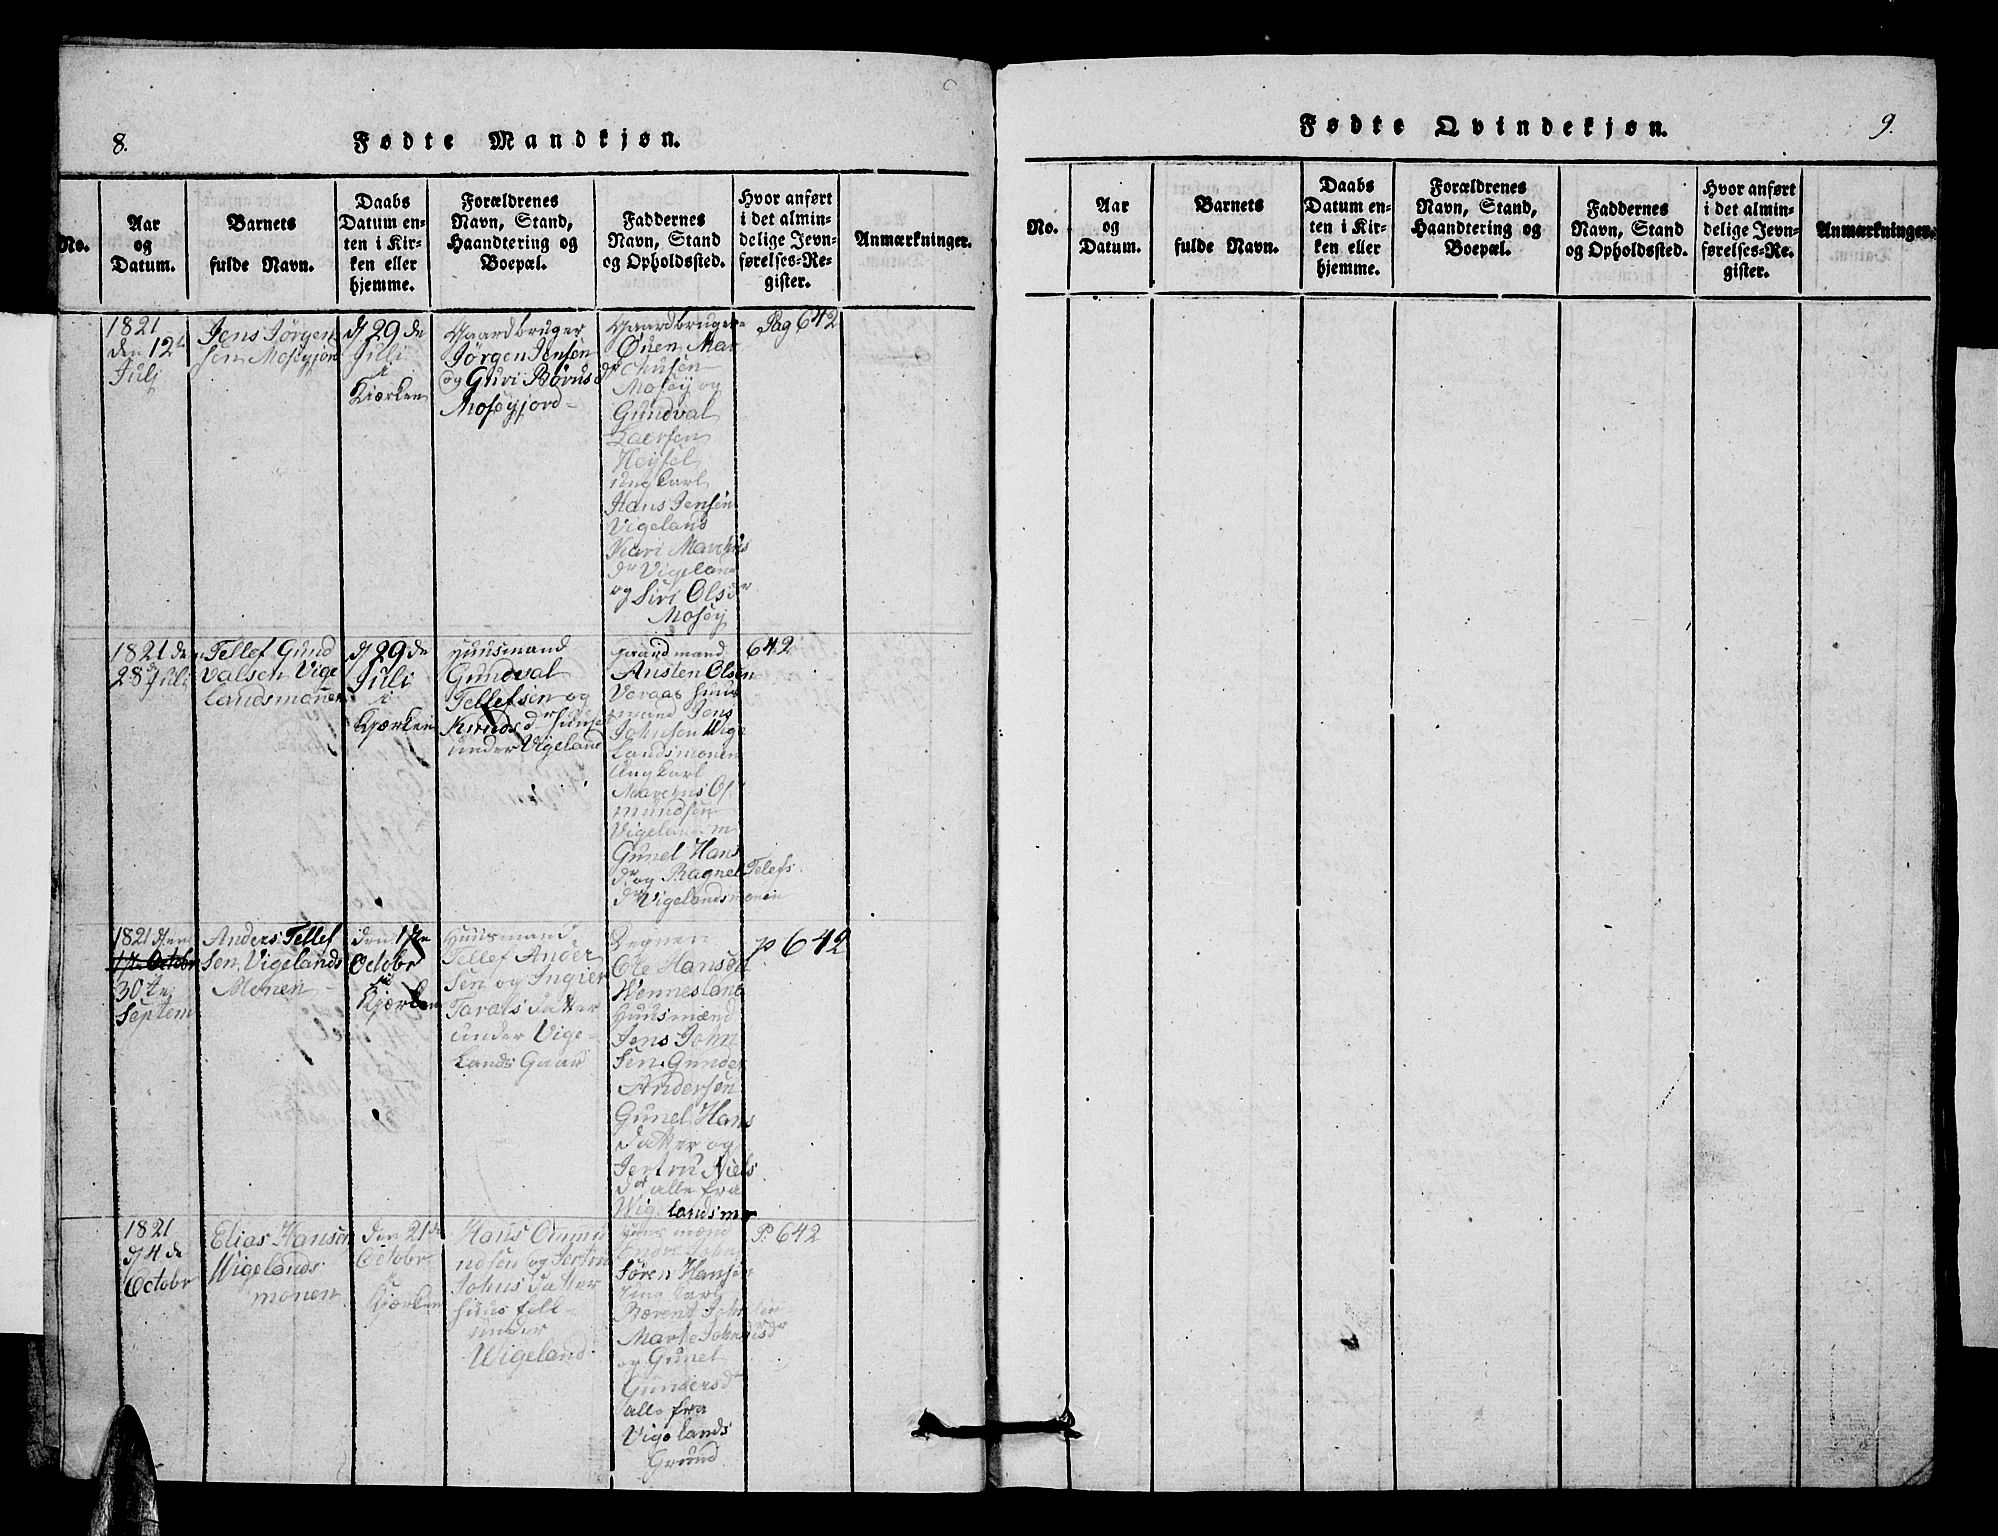 8.
Fødte Mandkjøn.
No.
Aar
og
Datum.
Barnets
fulde Navn.
Daabs
Datum en-
ten i Kir-
ken eller
hjemme.
Forældrenes
Navn, Stand,
Haandtering og
Boepæl.
Faddernes
Navn, Stand
og Opholdssted.
Hvor anført
i det almin-
delige Jevn-
førelses-Re-
gister.
Anmærkninger.
1821
den 12te
Juli
Jens Jørgen
sen Moseyjord
d 29 de
Juli
i
Kiørken
Gaardbruger
Jørgen Jensen
og Guri Børus dr
Moseyjord
Gaardbruger
Ouen Mar
chusen
Mosøy og
Gundval
Laersen
Heysel
ung karl
Hans Jensen
Vigeland
Kari Marchus
dr Vigeland
og Siri Olsdr
Mosøy
Pag 642
1821 de
28 Juli
Tellef Gund
valsen Vige
landsmonen
d 29 de
Juli
i
Kjørken
Huusmand
Gundval
Tellefsen og
Knudsdr
under Vigeland
Gaardmand
Austen Olsen
Voraas Huus
mand Jens
Johnsen Vige
landsmonen
Ung karl
Maverus Os
mundsen
Vigelandsm
Gunel Hans
dr og Ragnel Telefs
dr Vigelandsmonen
642
1821 den
1te Octobr
30te
Septem
Anders Tellef
sen Vigelands
Monen
den 1te
Octobr
i
Kjørken
Huusmand
Tellef Ander
sen og Ingier
Tarals datter
under Vige-
lands Gaar
Degnen
Ole Hansen
Wennesland
Huusmænd
Jens John
sen Gunder
Andersen
Gunel Hans
datter og
Jertru Niels
dr alle fra
Wigelandsm
p 642
1821
d 4 de
Octobr
Elias Hansen
Wigelands
monen
den 21 de
Octobr
i
Kjørken
Hans Ommu
ndsen og Jertru
Johns datter
huus fell
under
Wigeland
Huusmænd
Endre Johns
Søren Hansen
Ung karl
Bærent Johnsen
Marte Johnsdr
og Gunel
Gundersdr
alle fra
Vigelands
Grund
P. 642
Fødte Qvindekjøn.
9.
No.
Aar
og
Datum.
Barnets
fulde Navn.
Daabs
Datum en-
ten i Kir-
ken eller
hjemme.
Forældrenes
Navn, Stand,
Haandtering og
Boepæl.
Faddernes
Navn, Stand
og Opholdssted.
Hvor anført
i det almin-
delige Jevn-
førelses-Re-
gister.
Anmærkninger.